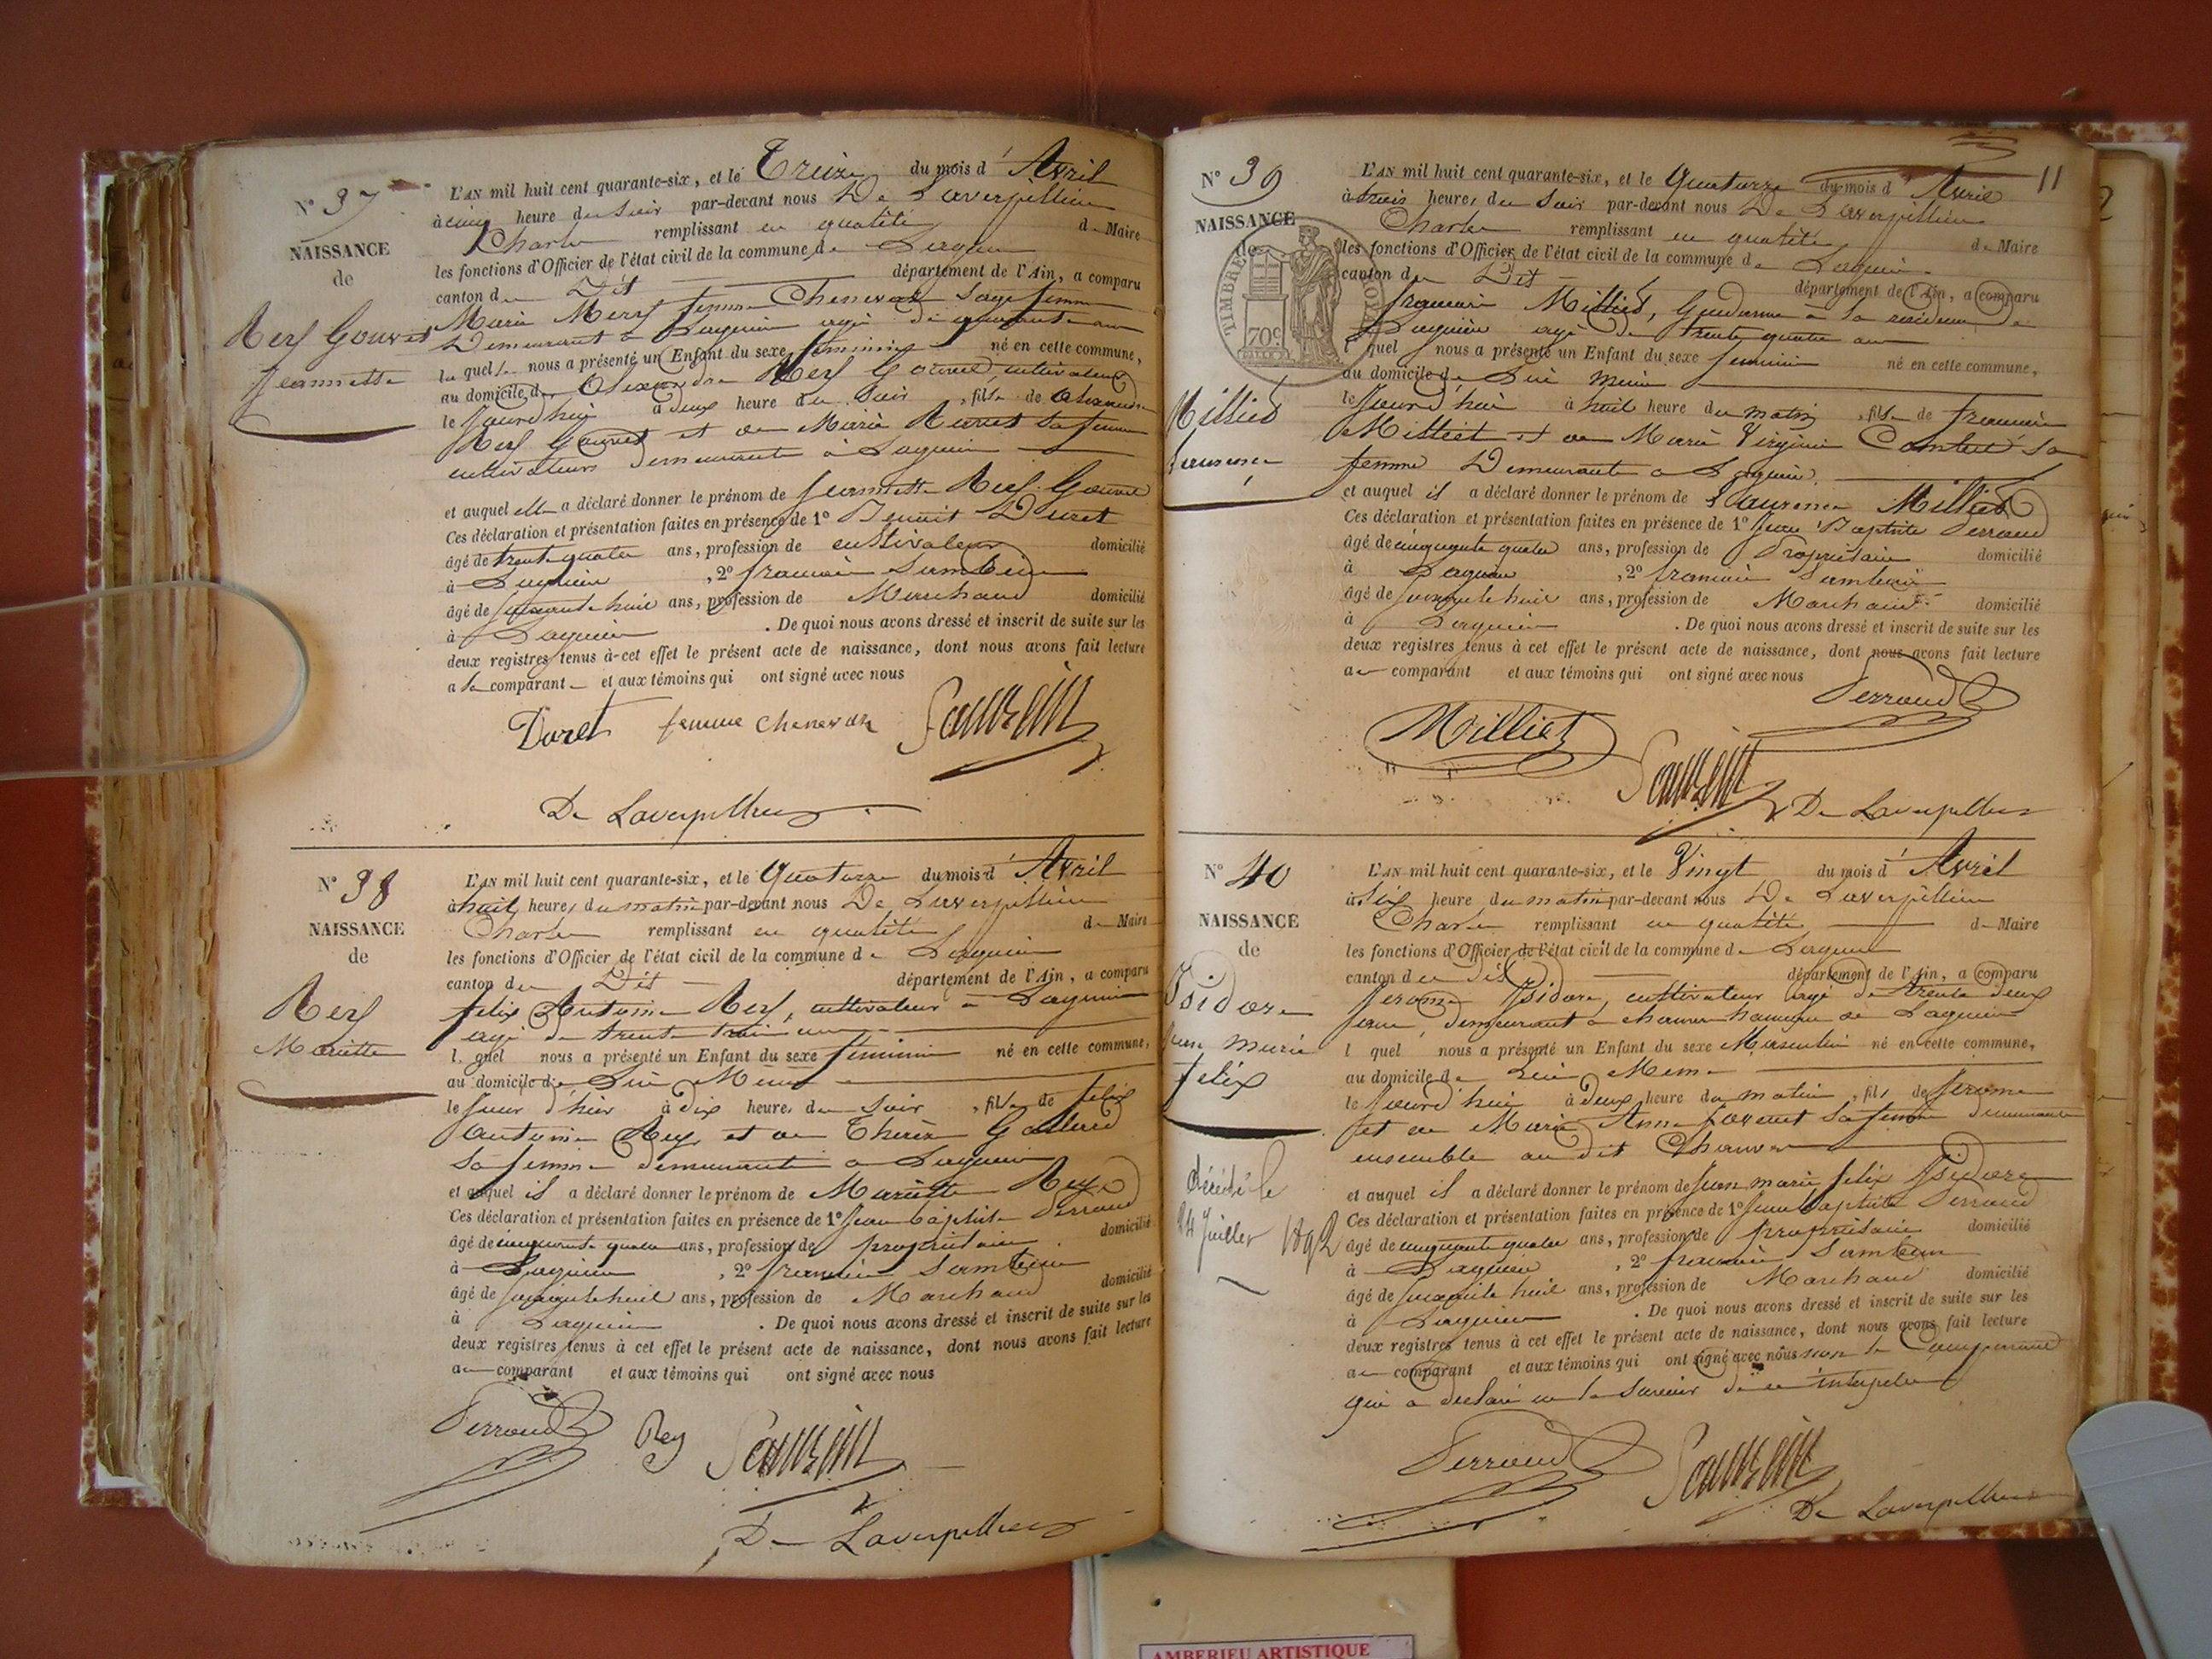 N° 37
NAISSANCE
de
Rey Gouvet
Jeannette
L'AN mil huit cent quarante-six, et le Treize du mois d'Avril
à cinq heure du Soir par-devant nous De Laverpillière
Charles remplissant en qualité de Maire
les fonctions d'Officier de l'état civil de la commune de Lagnieu
canton du Dit département de l'Ain, a comparu
Marie Mery femme Chenevaz Sage femme
Demeurant à Lagnieu agé de quarante ans
la quelle nous a présenté un Enfant du sexe féminin né en cette commune,
au domicile d' Rey Gouvet cultivateur
le Jourd'hui à deux heure du Soir , fille de
Rey Gouvet et de Marie sa femme
cultivateurs demeurants à Lagnieu
et auquel elle a déclaré donner le prénom de Jeannette Rey Gouvet
Ces déclaration et présentation faites en présence de 1° Benoit Duret
âgé de trente quatre ans, profession de cultivateur domicilié
à Lagnieu , 2° françois
âgé de huit ans, profession de Marchand domicilié
à Lagnieu . De quoi nous avons dressé et inscrit de suite sur les
deux registres tenus à cet effet le présent acte de naissance, dont nous avons fait lecture
a la comparante et aux témoins qui ont signé avec nous
Duret femme chenevaz
De Laverpillière
N° 38
NAISSANCE
de
Rey
Mariette
L'AN mil huit cent quarante-six, et le Quatorze du mois d'Avril
à huit heures du matin par-devant nous De Laverpillière
Charles remplissant en qualité de Maire
les fonctions d'Officier de l'état civil de la commune de Lagnieu
canton du Dit département de l'Ain, a comparu
felix Antoine Rey, cultivateur à Lagnieu
agé de trente trois ans
le quel nous a présenté un Enfant du sexe féminin né en cette commune,
au domicile de Lui Meme
le Jour d'hier à dix heures du Soir , fille de felix
Antoine Rey et de Thérèse
sa femme demeurants a Lagnieu
et auquel il a déclaré donner le prénom de Mariette Rey
Ces déclaration et présentation faites en présence de 1° Jean baptiste Perraud
âgé de cinquante quatre ans, profession de propriétaire domicilié
à Lagnieu , 2° françois
âgé de huit ans, profession de Marchand domicilié
à Lagnieu . De quoi nous avons dressé et inscrit de suite sur les
deux registres tenus à cet effet le présent acte de naissance, dont nous avons fait lecture
au comparant et aux témoins qui ont signé avec nous
Perraud Rey
De Laverpillière
11
N° 39
NAISSANCE
de
TIMBRE ROYAL
70c
Milliet
Laurence
L'AN mil huit cent quarante-six, et le Quatorze du mois d'Avril
à trois heures du Soir par-devant nous De Laverpillière
Charles remplissant en qualité de Maire
les fonctions d'Officier de l'état civil de la commune de Lagnieu
canton du Dit département de l'Ain, a comparu
françois Milliet, Gendarme à la résidence de
Lagnieu agé de trente quatre ans
le quel nous a présenté un Enfant du sexe feminin né en cette commune,
au domicile de Lui meme
le Jourd'hui à huit heure du matin , fille de françois
Milliet et de Marie Virginie sa
femme Demeurants a Lagnieu
et auquel il a déclaré donner le prénom de Laurence Milliet
Ces déclaration et présentation faites en présence de 1° Jean Baptiste Perraud
âgé de cinquante quatre ans, profession de Propriétaire domicilié
à Lagnieu , 2° françois
âgé de huit ans, profession de Marchand domicilié
à Lagnieu . De quoi nous avons dressé et inscrit de suite sur les
deux registres tenus à cet effet le présent acte de naissance, dont nous avons fait lecture
au comparant et aux témoins qui ont signé avec nous
Perraud
Milliet
De Laverpillière
N° 40
NAISSANCE
de
Isidore
Jean marie
felix
décédé le
24 Juillet 1892
L'AN mil huit cent quarante-six, et le Vingt du mois d'Avril
à Six heure du matin par-devant nous De Laverpillière
Charles remplissant en qualité de Maire
les fonctions d'Officier de l'état civil de la commune de Lagnieu
canton du Dit département de l'Ain, a comparu
Jerome Isidore, cultivateur agé de trente deux
ans, demeurant a hameau de Lagnieu
le quel nous a présenté un Enfant du sexe Masculin né en cette commune,
au domicile de Lui Meme
le Jourd'hui à deux heure du matin , fils de Jerome
et de Marie Anne sa femme demeurants
ensemble au dit
et auquel il a déclaré donner le prénom de Jean marie felix Isidore
Ces déclaration et présentation faites en présence de 1° Jean baptiste Perraud
âgé de cinquante quatre ans, profession de propriétaire domicilié
à Lagnieu , 2° françois
âgé de huit ans, profession de Marchand domicilié
à Lagnieu . De quoi nous avons dressé et inscrit de suite sur les
deux registres tenus à cet effet le présent acte de naissance, dont nous avons fait lecture
au comparant et aux témoins qui ont signé avec nous non le Comparant
qui a déclaré ne le savoir de ce interpellé
Perraud
De Laverpillière
AMBERIEU ARTISTIQUE